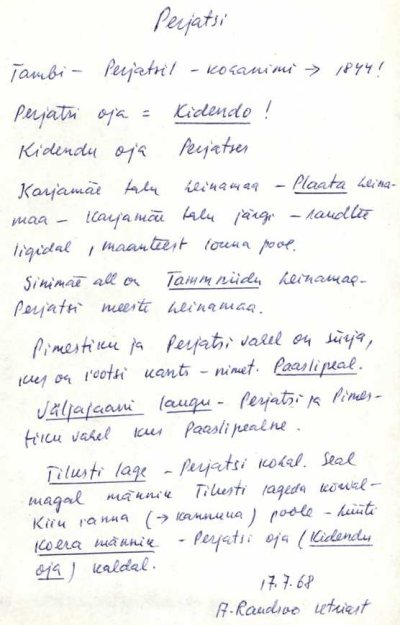 Perjatsi
Tambi - Perjatsil - kohanimi → 1844!
Perjatsi oja = Kidendo!
Kidendu oja Perjatses
Karjamäe talu heinamaa - Plaata heina-
maa - Karjamäe talu järgi - raudtee
ligidal, maanteest lõuna pool.
Sinimäe all on Tammniidu heinamaa-
Perjatsi meeste heinamaa.
Pimestiku ja Perjatsi vahel on sürja,
kus on rootsi kants - nimet. Paaslipeal.
Väljajaani laugu - Perjatsi ja Pimes-
tiku vahel kus Paaslipealne.
Tilusti lage - Perjatsi kohal. Seal
magal männik Tilusti lageda kõrval-
Kiiu ranna (→ kannuka) poole - hüüti
Koera männik - Perjatsi oja (Kidendu
oja) kaldal.
17.7.68
A. Raudsoo